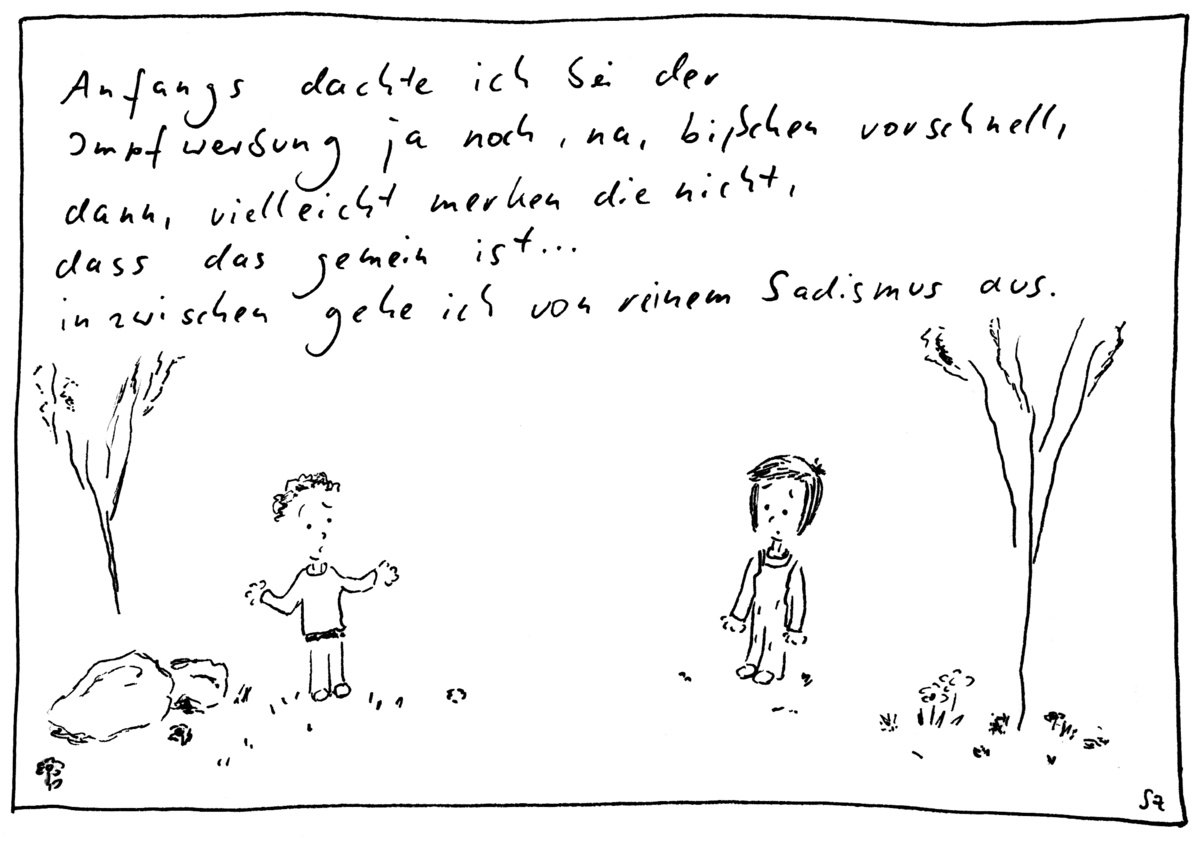 Anfangs dachte ich bei der
Impfwerbung ja noch, na, bißchen vorschnell,
dann, vielleicht merken die nicht,
dass das gemein ist...
inzwischen gehe ich von reinem Sadismus aus.
SZ